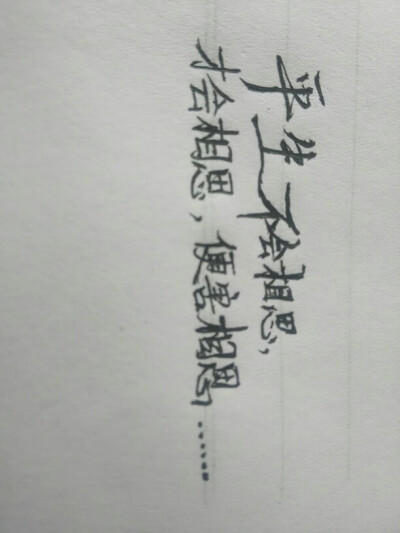 平生不会相思，
才会相思，便害相思……